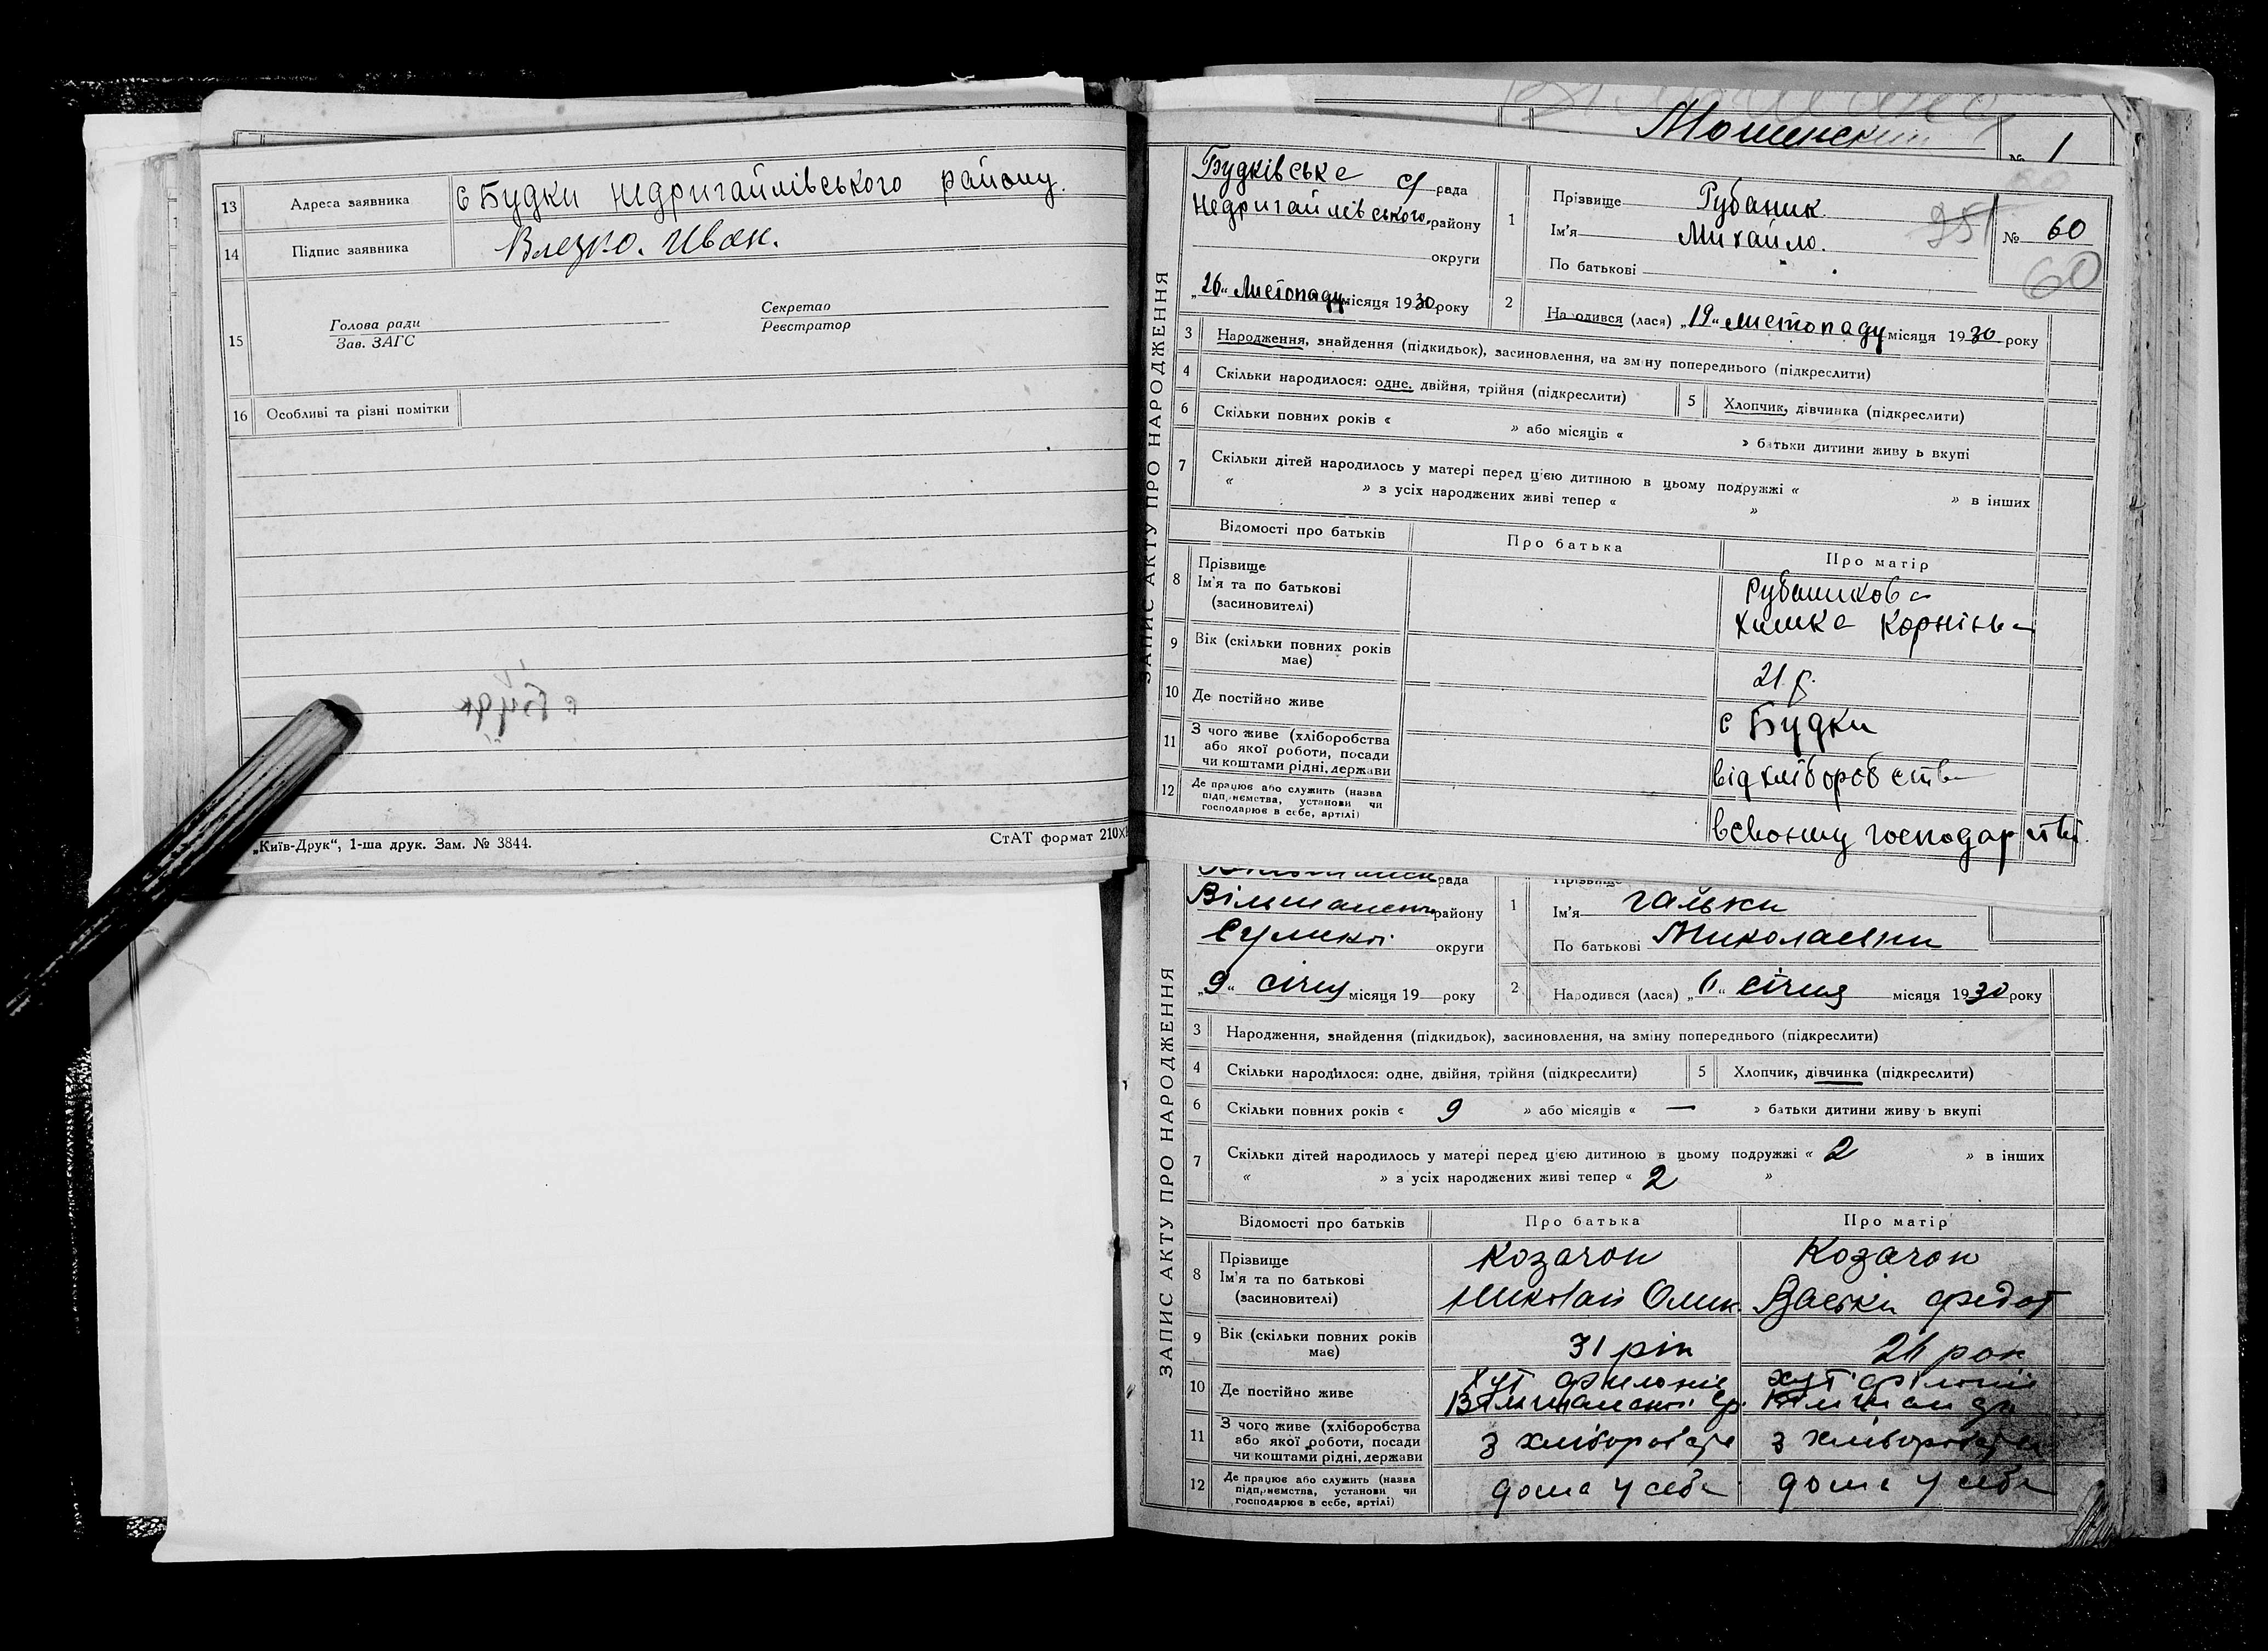 13 Адреса заявника с Будки Недригайлівського району.
14 Підпис заявника Влезко. Иван.
15 Голова ради
Зав. ЗАГС
Секретар
Реєстратор
16 Особливі та різні помітки
с Будк
„Київ-Друк“, 1-ша друк. Зам. № 3844.
СтАТ формат 210Х
№ 1
ЗАПИС АКТУ ПРО НАРОДЖЕННЯ
Будківське с/ рада
Недригайлівського району
округи
„26“ Листопаду місяця 1930 року
1 Прізвище Рубаник.
Ім'я Михайло.
По батькові
251
№ 60
60
2 Народився (лася) „19“ листопаду місяця 1930 року
3 Народження, знайдення (підкидьок), засиновлення, на зміну попереднього (підкреслити)
4 Скільки народилося: одне, двійня, трійня (підкреслити)
5 Хлопчик, дівчинка (підкреслити)
6 Скільки повних років « » або місяців « » батьки дитини живу ь вкупі
7 Скільки дітей народилось у матері перед цією дитиною в цьому подружжі « » в інших
« » з усіх народжених живі тепер « »
Відомості про батьків Про батька Про матір
8 Прізвище
Ім'я та по батькові
(засиновителі)
Рубаникова
Химка Корніївна
9 Вік (скільки повних років має) 21 р.
10 Де постійно живе с Будки
11 З чого живе (хліборобства
або якої роботи, посади
чи коштами рідні, держави
від хліборобства
12 Де працює або служить (назва
підприємства, установи чи
господарює в себе, артілі)
в своєму господарстві.
ЗАПИС АКТУ ПРО НАРОДЖЕННЯ
рада
району
Сумської округи
„9“ січня місяця 19 року
1 Прізвище
Ім'я Гальки
По батькові Миколаевни
2 Народився (лася) „6“ січня місяця 1930 року
3 Народження, знайдення (підкидьок), засиновлення, на зміну попереднього (підкреслити)
4 Скільки народилося: одне, двійня, трійня (підкреслити)
5 Хлопчик, дівчинка (підкреслити)
6 Скільки повних років « 9 » або місяців « — » батьки дитини живу ь вкупі
7 Скільки дітей народилось у матері перед цією дитиною в цьому подружжі « 2 » в інших
« » з усіх народжених живі тепер « 2 »
Відомості про батьків Про батька Про матір
8 Прізвище
Ім'я та по батькові
(засиновителі)
Козачок Козачок
Николай Федот
9 Вік (скільки повних років має) 31 рік 26 рок
10 Де постійно живе хут хут
11 З чого живе (хліборобства
або якої роботи, посади
чи коштами рідні, держави
з з
12 Де працює або служить (назва
підприємства, установи чи
господарює в себе, артілі)
дома у себе дома у себе